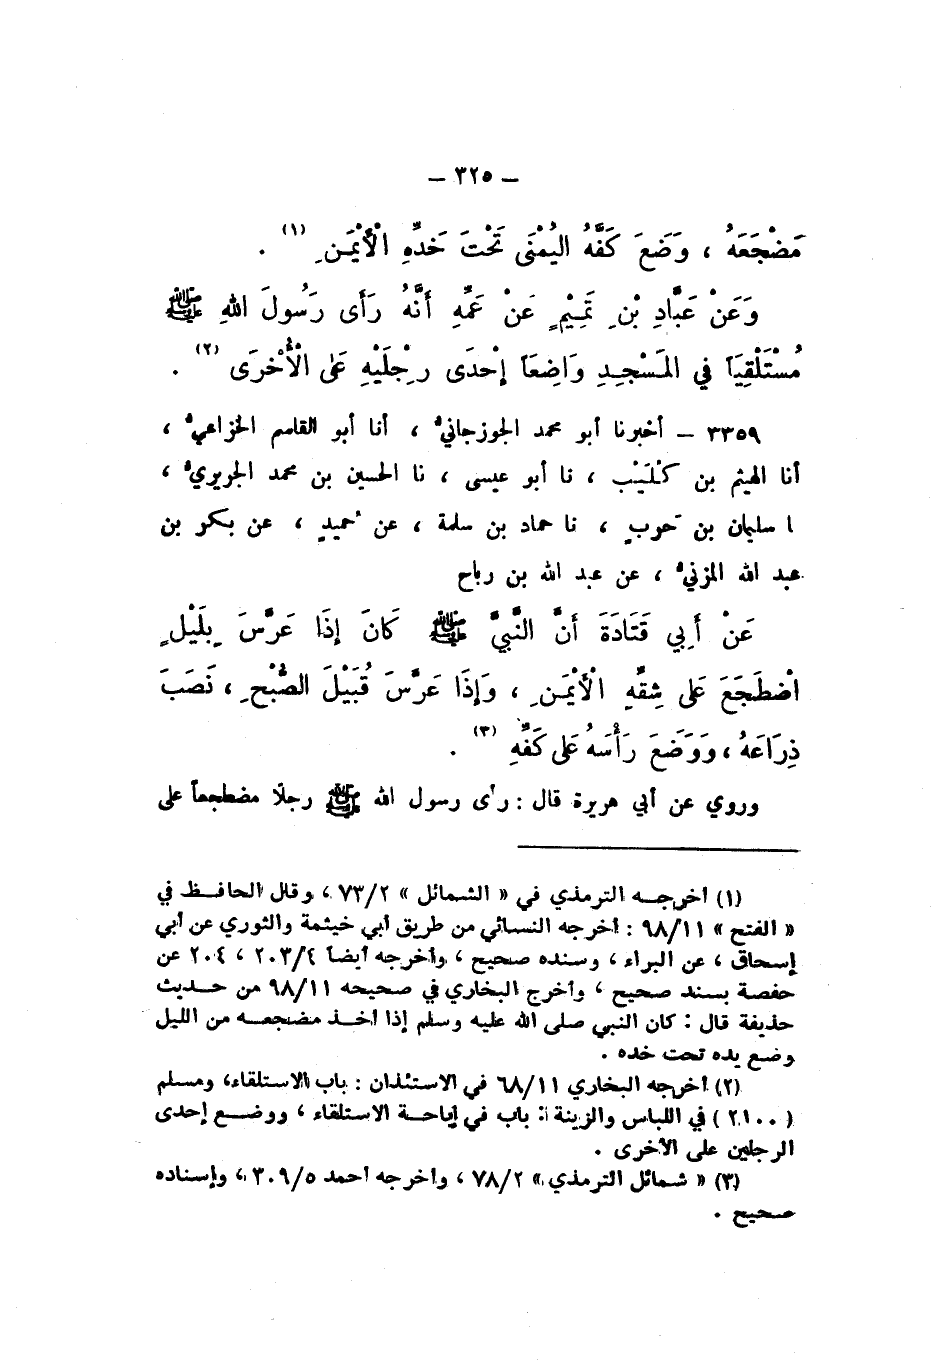 – ٣٢٥ –
مَضْجَعَهُ ، وَضَعَ كَفَّهُ اليُمْنَى تَحْتَ خَدِّهِ الْأَيْمَنِ (١) .
وَعَنْ عَبَّادِ بْنِ تَمِيْمٍ عَنْ عَمِّهِ أَنَّهُ رَأَى رَسُولَ اللهِ ﷺ
مُسْتَلْقِيَاً في المَسْجِدِ وَاضِعَاً إِحْدَى رِجْلَيْهِ عَلَى الْأُخْرَى (٢) .
٣٣٥٩ – أخبرنا أبو محمد الجوزجانيُّ ، أنا أبو القاسم الخزاعيُّ ،
أنا الهيثم بن كُلَيْبٍ ، نا أبو عيسى ، نا الحسين بن محمد الجريريُّ ،
ا سليمان بن حَربٍ ، نا حماد بن سلمة ، عن حُميدٍ ، عن بكر بن
عبد الله المزنيُّ ، عن عبد الله بن رباح
عَنْ أَبِي قَتَادَةَ أَنَّ النَّبِيَّ ﷺ كَانَ إِذَا عَرَّسَ بِلَيْلٍ
اضْطَجَعَ عَلَى شِقِّهِ الْأَيْمَنِ ، وَإِذَا عَرَّسَ قُبَيْلَ الصُّبْحِ ، نَصَبَ
ذِرَاعَهُ ، وَوَضَعَ رَأْسَهُ عَلَى كَفِّهِ (٣) .
وروي عن أبي هريرة قال : رأى رسول الله ﷺ رجلًا مضطجعاً على
(١) أخرجه الترمذي في « الشمائل » ٧٣/٢ ، وقال الحافظ في
« الفتح » ٩٨/١١ : أخرجه النسائي من طريق أبي خيثمة والثوري عن أبي
إسحاق ، عن البراء ، وسنده صحيح ، وأخرجه أيضاً ٢٠٣/٤ ، ٢٠٤ عن
حفصة بسند صحيح ، وأخرج البخاري في صحيحه ٩٨/١١ من حديث
حذيفة قال : كان النبي صلى الله عليه وسلم إذا أخذ مضجعه من الليل
وضع يده تحت خده .
(٢) أخرجه البخاري ٦٨/١١ في الاستئذان : باب الاستلقاء، ومسلم
( ٢١٠٠ ) في اللباس والزينة : باب في إباحة الاستلقاء ، ووضع إحدى
الرجلين على الأخرى .
(٣) « شمائل الترمذي » ٧٨/٢ ، وأخرجه أحمد ٣٠٩/٥ ، وإسناده
صحيح .